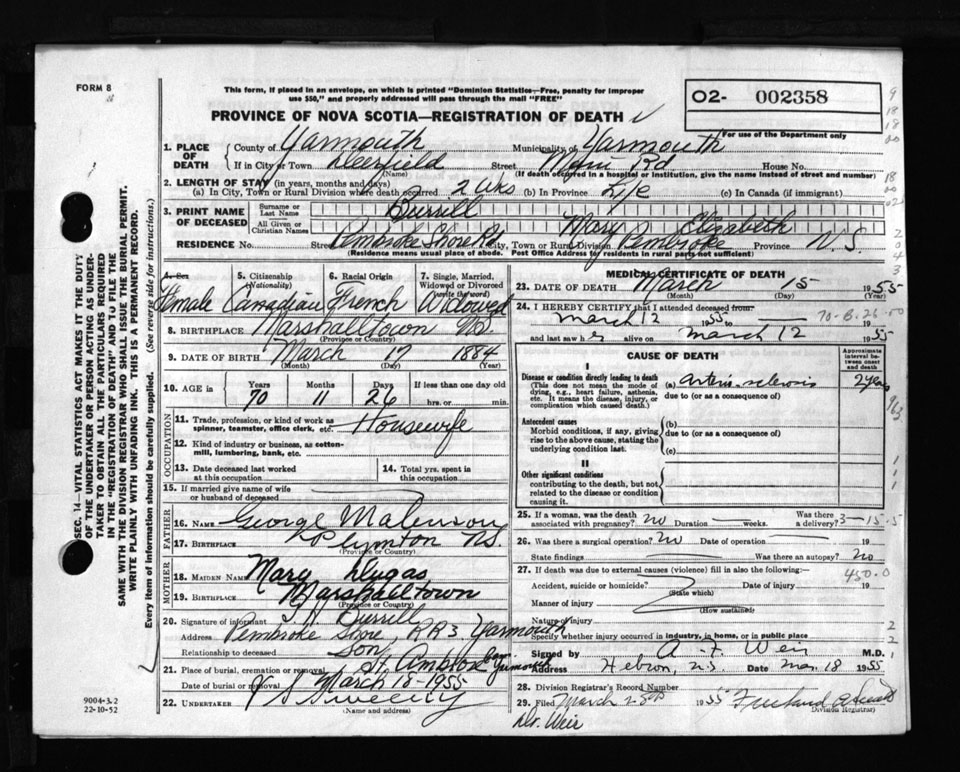 FORM 8
This form, if placed in an envelope, on which is printed "Dominion Statistics—Free, penalty for improper
use $50," and properly addressed will pass through the mail "FREE"
O2- 002358
PROVINCE OF NOVA SCOTIA—REGISTRATION OF DEATH
For use of the Department only
1. PLACE OF DEATH
County of Yarmouth Municipality of Yarmouth
If in City or Town Deerfield Street Main Rd House No.
(Name) (If death occurred in a hospital or institution, give the name instead of street and number)
2. LENGTH OF STAY (in years, months and days)
(a) In City, Town or Rural Division where death occurred 2 wks (b) In Province Life (c) In Canada (if immigrant)
3. PRINT NAME OF DECEASED
Surname or Last Name Burrill
All Given or Christian Names Mary Elizabeth
RESIDENCE No. Street Pembroke Shore Rd City, Town or Rural Division Pembroke Province N.S.
(Residence means usual place of abode. Post Office Address for residents in rural parts not sufficient)
4. Sex Female
5. Citizenship (Nationality) Canadian
6. Racial Origin French
7. Single, Married, Widowed or Divorced (write the word) Widowed
8. BIRTHPLACE Marshalltown N.S.
(Province or Country)
9. DATE OF BIRTH March 17 1884
(Month) (Day) (Year)
10. AGE in Years 70 Months 11 Days 26 If less than one day old hrs. or min.
OCCUPATION
11. Trade, profession, or kind of work as spinner, teamster, office clerk, etc. Housewife
12. Kind of industry or business, as cotton-mill, lumbering, bank, etc.
13. Date deceased last worked at this occupation
14. Total yrs. spent in this occupation
15. If married give name of wife or husband of deceased
FATHER
16. NAME George Malenson
17. BIRTHPLACE Plymton N.S.
(Province or Country)
MOTHER
18. MAIDEN NAME Mary Dugas
19. BIRTHPLACE Marshalltown
(Province or Country)
20. Signature of informant Burrill
Address Pembroke Shore, RR3, Yarmouth
Relationship to deceased Son
21. Place of burial, cremation or removal St. Ambrose Cem. Yarmouth
Date of burial or removal March 18-1955
22. UNDERTAKER V S Sweeny
(Name and address)
MEDICAL CERTIFICATE OF DEATH
23. DATE OF DEATH March 15 1955
(Month) (Day) (Year)
24. I HEREBY CERTIFY that I attended deceased from
March 12 1955 to 19
70-B.26-50
and last saw h er alive on March 12 1955
CAUSE OF DEATH
Approximate interval between onset and death
I
Disease or condition directly leading to death
(This does not mean the mode of dying, e.g., heart failure, asthenia, etc. It means the disease, injury, or complication which caused death.)
(a) arterio-sclerosis 2 years
due to (or as a consequence of)
Antecedent causes
Morbid conditions, if any, giving rise to the above cause, stating the underlying condition last.
(b)
due to (or as a consequence of)
(c)
II
Other significant conditions
contributing to the death, but not related to the disease or condition causing it.
25. If a woman, was the death associated with pregnancy? no Duration weeks. Was there a delivery?
3-15-5
26. Was there a surgical operation? no Date of operation 19
State findings Was there an autopsy? no
27. If death was due to external causes (violence) fill in also the following:—
450.0
Accident, suicide or homicide? Date of injury 19
(State which)
Manner of injury
(How sustained)
Nature of injury
Specify whether injury occurred in industry, in home, or in public place
Signed by A F Weir M.D.
Address Hebron, N.S. Date Mar. 18 1955
28. Division Registrar's Record Number
29. Filed March 1955
Division Registrar)
Dr. Weir
SEC. 14—VITAL STATISTICS ACT MAKES IT THE DUTY
OF THE UNDERTAKER OR PERSON ACTING AS UNDER-
TAKER TO OBTAIN ALL THE PARTICULARS REQUIRED
IN THE "REGISTRATION OF DEATH" AND TO FILE THE
SAME WITH THE DIVISION REGISTRAR WHO SHALL ISSUE THE BURIAL PERMIT.
WRITE PLAINLY WITH UNFADING INK. THIS IS A PERMANENT RECORD.
Every item of information should be carefully supplied. (See reverse side for instructions.)
9004-3.2
22-10-52